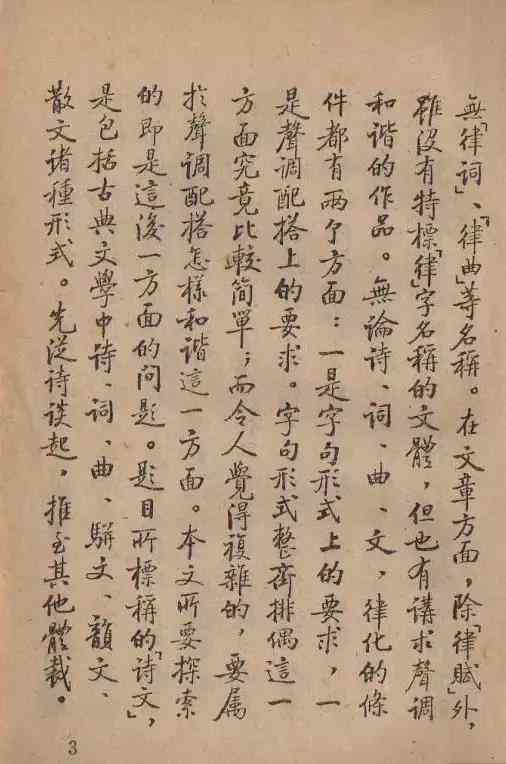 無「律詞」、「律曲」等名稱。在文章方面，除「律賦」外，
雖没有特標「律」字名稱的文體，但也有講求聲調
和諧的作品。無論詩、詞、曲、文，律化的條
件都有两个方面：一是字句形式上的要求，一
是聲調配搭上的要求。字句形式整齊排偶這一
方面究竟比較簡單；而令人覺得複雜的，要属
於聲調配搭怎樣和諧這一方面。本文所要探索
的即是這後一方面的问题。题目所標稱的「詩文」，
是包括古典文學中诗、词、曲、駢文、韻文、
散文诸種形式。先從诗谈起，推至其他體裁。
3